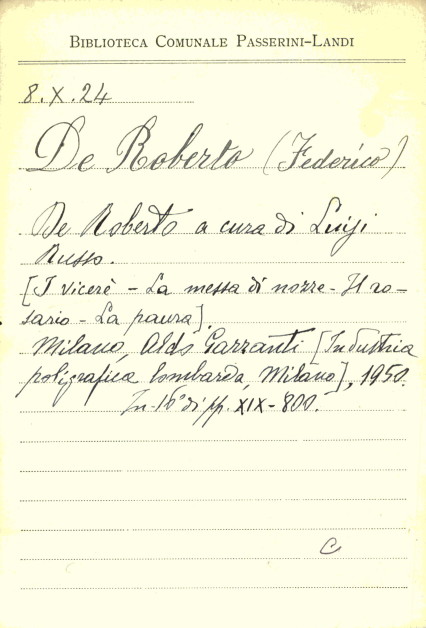 BIBLIOTECA COMUNALE PASSERINI-LANDI
8.X.24
De Roberto (Federico)
De Roberto a cura di Luigi
Russo.
[I vicerè - La messa di nozze - Il ro-
sario - La paura].
Milano, Aldo Garzanti [Industria
poligrafica lombarda, Milano], 1950.
In-16° di pp. XIX-800.
C